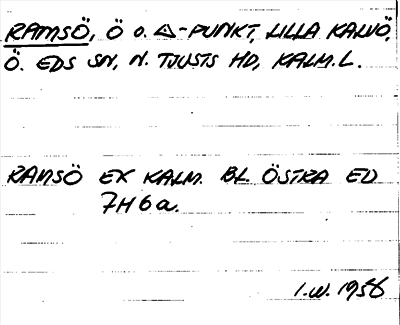 RAMSÖ, Ö O. △-PUNKT, LILLA KALVÖ,
Ö. EDS SN, N. TJUSTS HD, KALM. L.
RAMSÖ EK KALM. BL. ÖSTRA ED
7H6a.
I.W. 1956